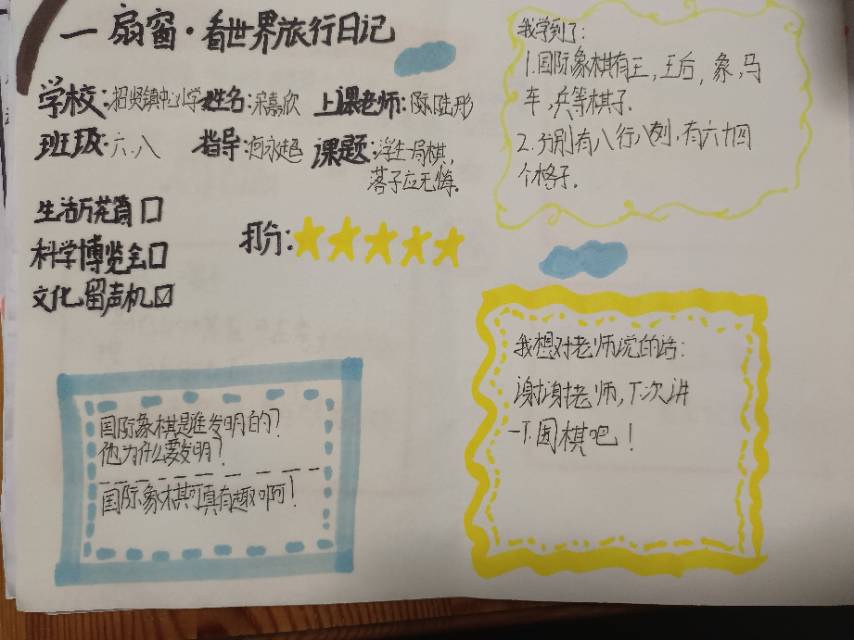 一扇窗·看世界旅行日记
学校:招贤镇中心小学 姓名:宋嘉欣 上课老师:陈陆彤
班级:六.八 指导:何永超 课题:浮生一局棋,
落子应无悔.
生活万花筒□
科学博览会□
文化留声机☑
打分:★★★★★
我学到了:
1.国际象棋有王,王后,象,马
车,兵等棋子.
2.分别有八行八列,有六十四
个格子.
国际象棋是谁发明的?
他为什么要发明?
国际象棋可真有趣啊!
我想对老师说的话:
谢谢老师,下次讲
一下围棋吧!